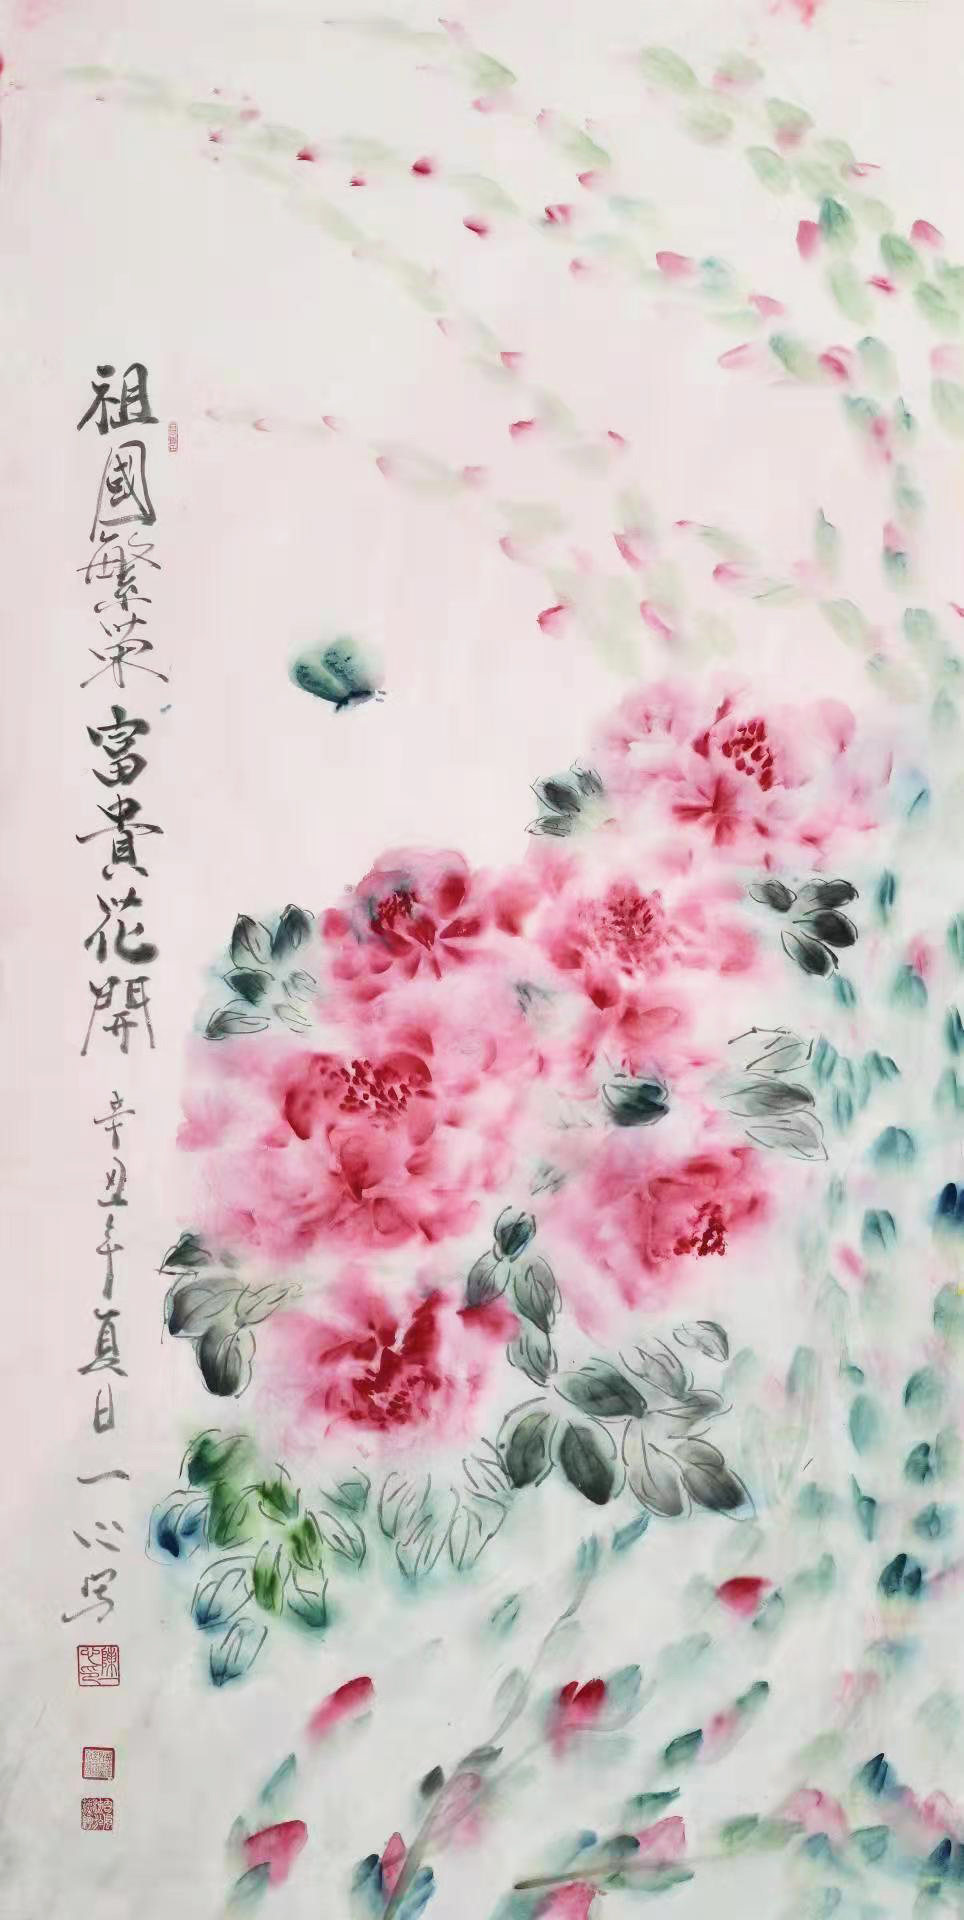 祖國繁荣富貴花開
辛丑年夏日一心写